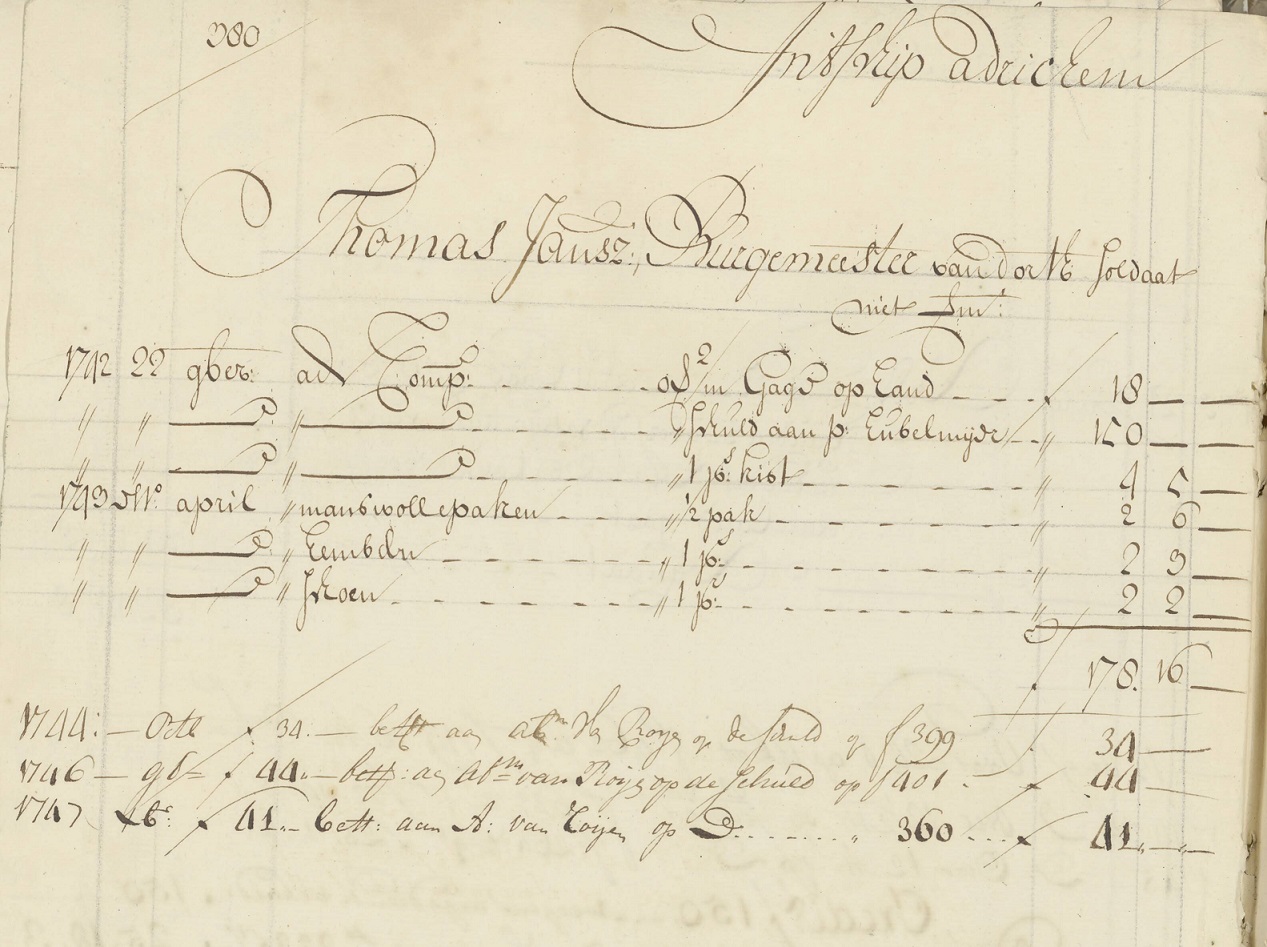 380
Int Schip Adrichem
Thomas Jansz:, Burgemeester van dorth Soldaat
niet
1742 22 9ber: ad Comp: o 2/m Gagie op hand ƒ 18 — —
" " — " — " Schuld aan p: Eubelmyse " 150 — —
" " — " — " 1 ps: kist " 4 5 —
1743 Ult: april " manswollepaken " 1/2 pak " 2 6 —
" " — " hembden " 1 ps: " 2 3 —
" " — " Schoen " 1 ps: " 2 2 —
ƒ 178. 16 —
1744: — Octb ƒ 34: — bett aan van Roye op de schuld op ƒ 399 ƒ 34 —
1746 — 9b ƒ 44„ — bett: aan Abm van Roije op de Schuld op ƒ 401 . ƒ 44 —
1747 ƒ 41„— bett: aan A: van Roijen op D " 360 ƒ 41„ —